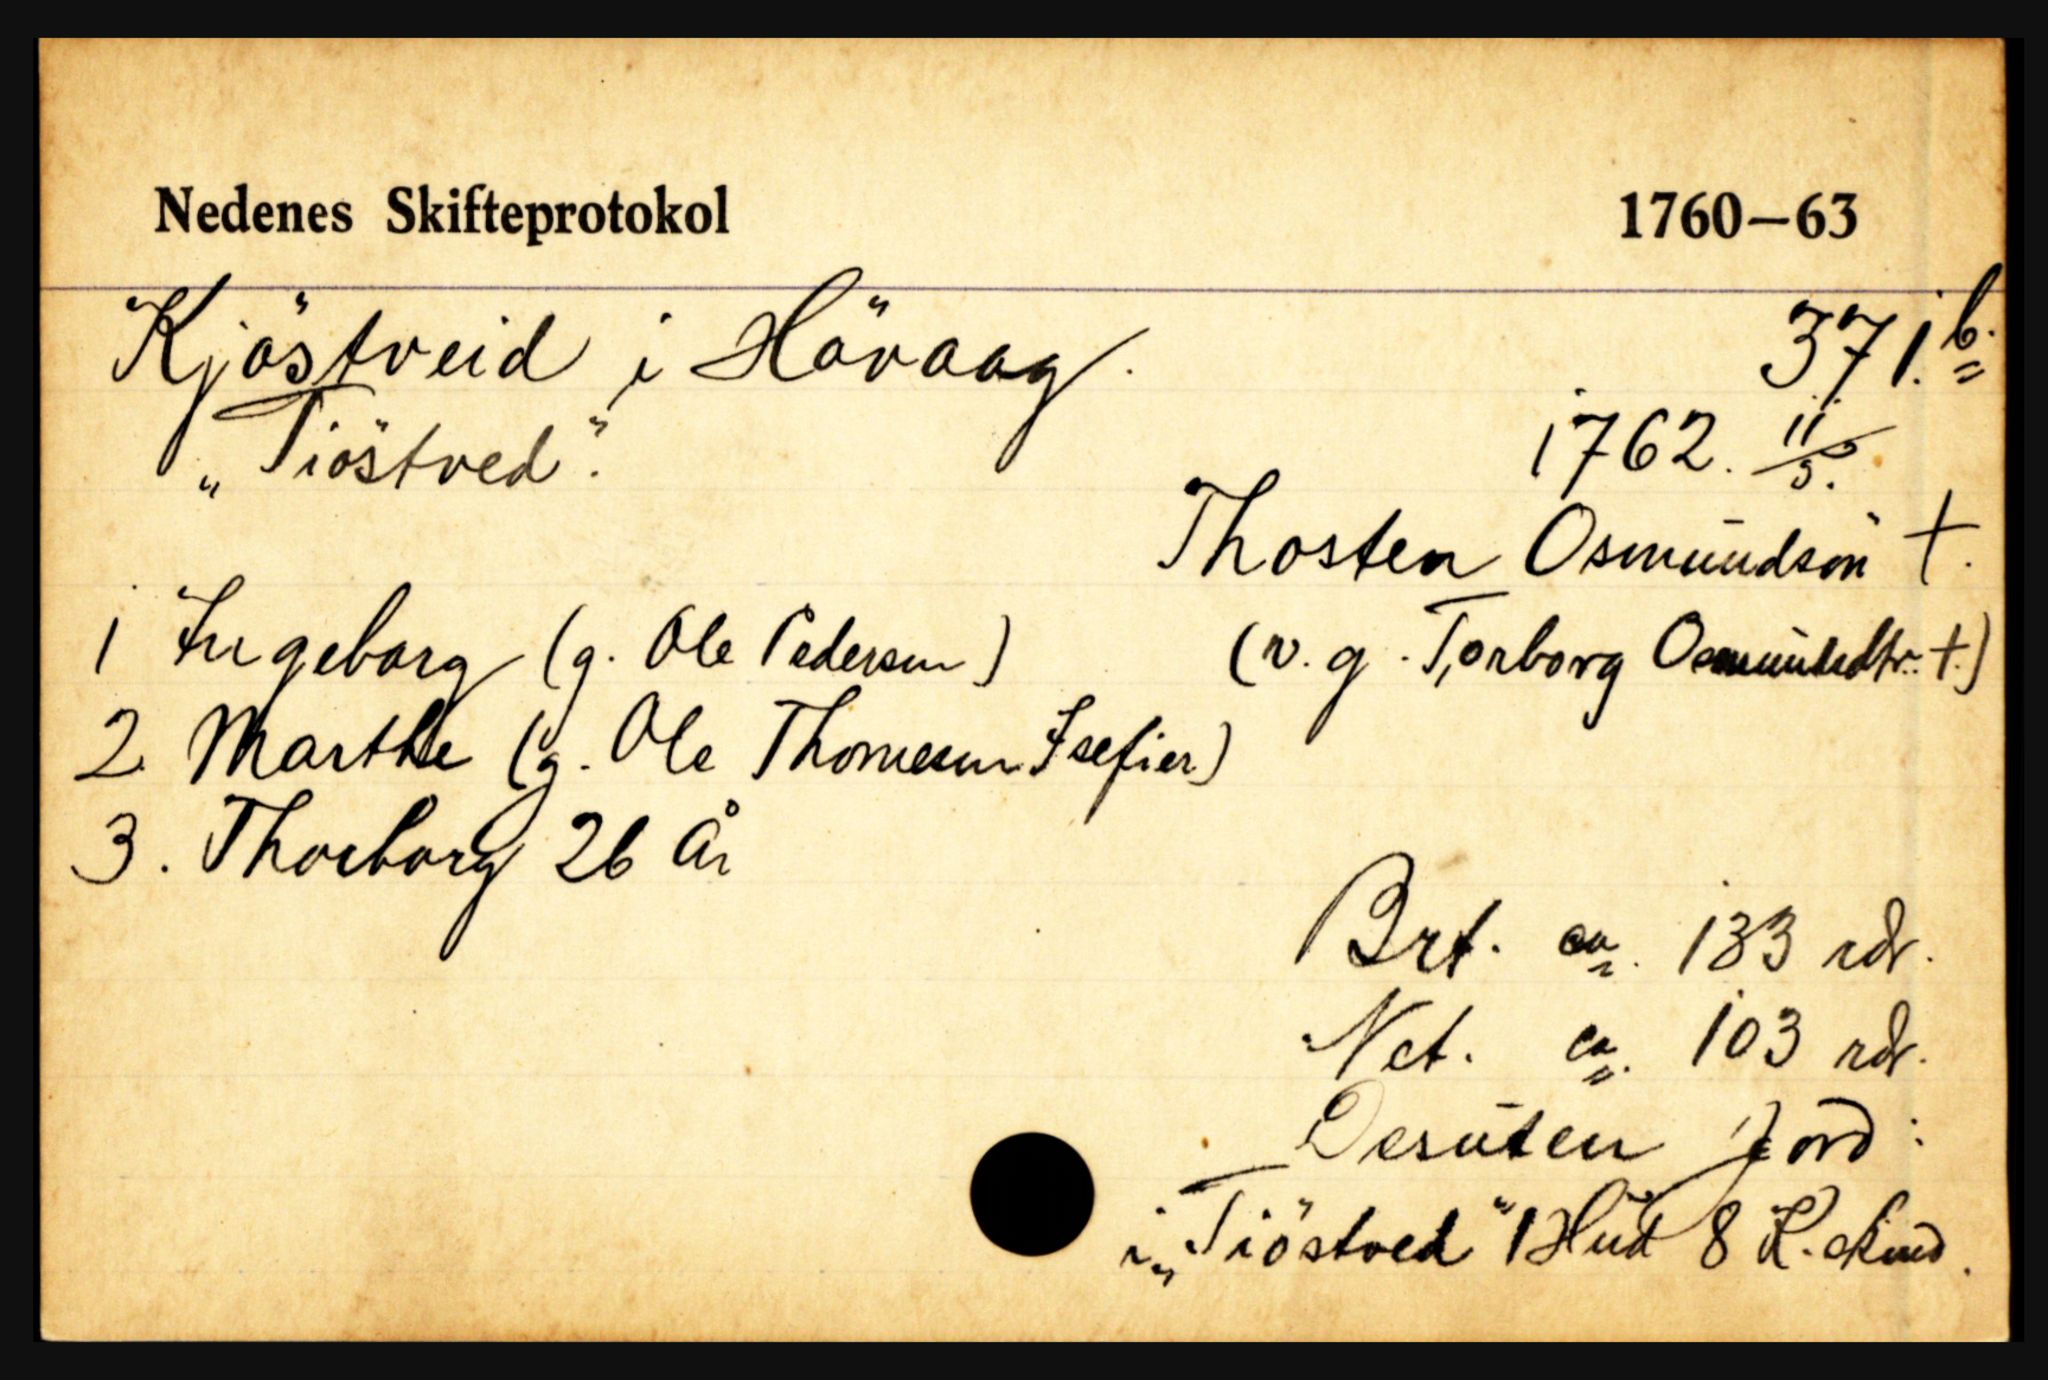 Nedenes Skifteprotokol 1760–63
Kjöstveid i Hövaag. 371.b.
"Tiöstved". 1762. 11/5.
Thosten Osmundsön †.
1 Ingeborg (g. Ole Pedersen) (v. g. Torborg Osmundsdtr. †.)
2. Marthe (g. Ole Thomesen Isefier)
3. Thorborg 26 år
Brt. ca. 133 rdr.
Net. ca. 103 rdr.
Desuten Jord:
i "Tiöstved" 1 Hud 8 K.skind.